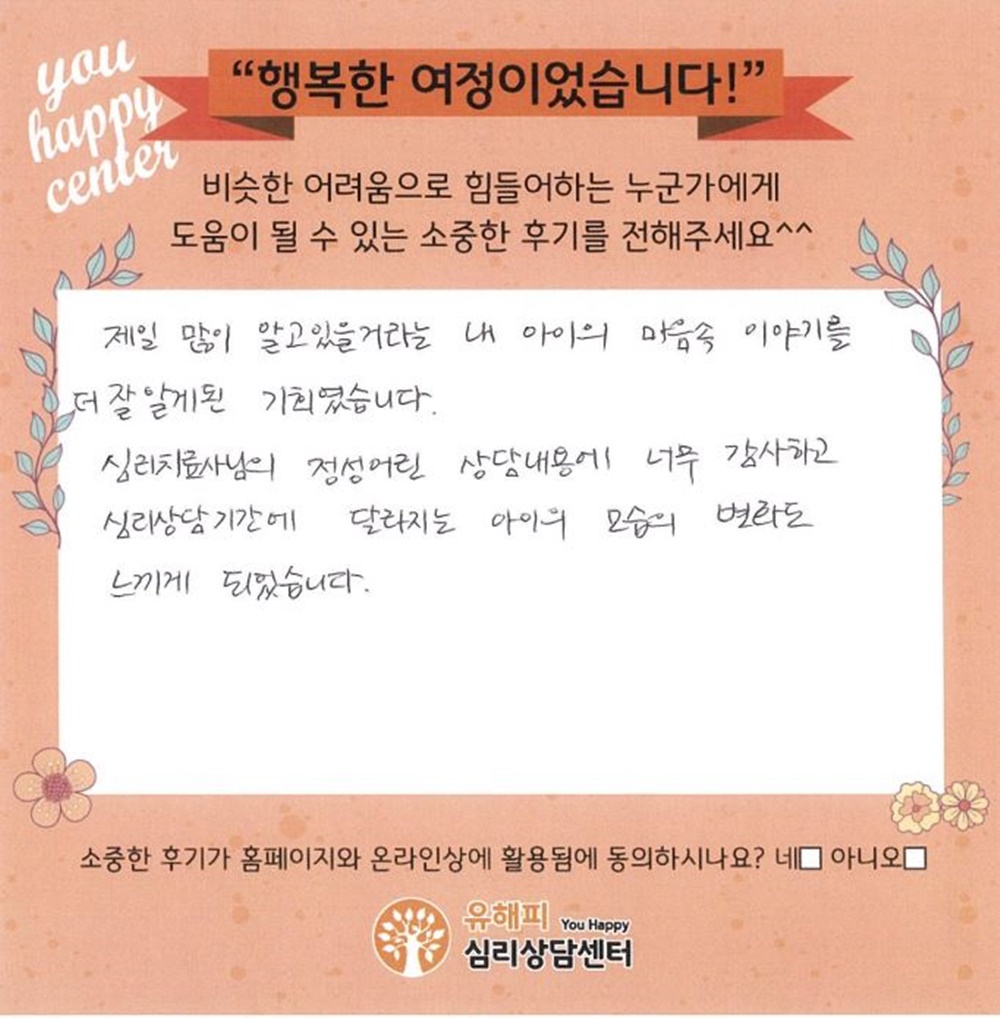 you
happy
center
“행복한 여정이었습니다!”
비슷한 어려움으로 힘들어하는 누군가에게
도움이 될 수 있는 소중한 후기를 전해주세요^^
제일 많이 알고있을거라는 내 아이의 마음속 이야기를
더 잘 알게된 기회였습니다.
심리치료사님의 정성어린 상담내용에 너무 감사하고
심리상담기간에 달라지는 아이의 모습의 변화도
느끼게 되었습니다.
소중한 후기가 홈페이지와 온라인상에 활용됨에 동의하시나요? 네□ 아니오□
유해피 You Happy
심리상담센터